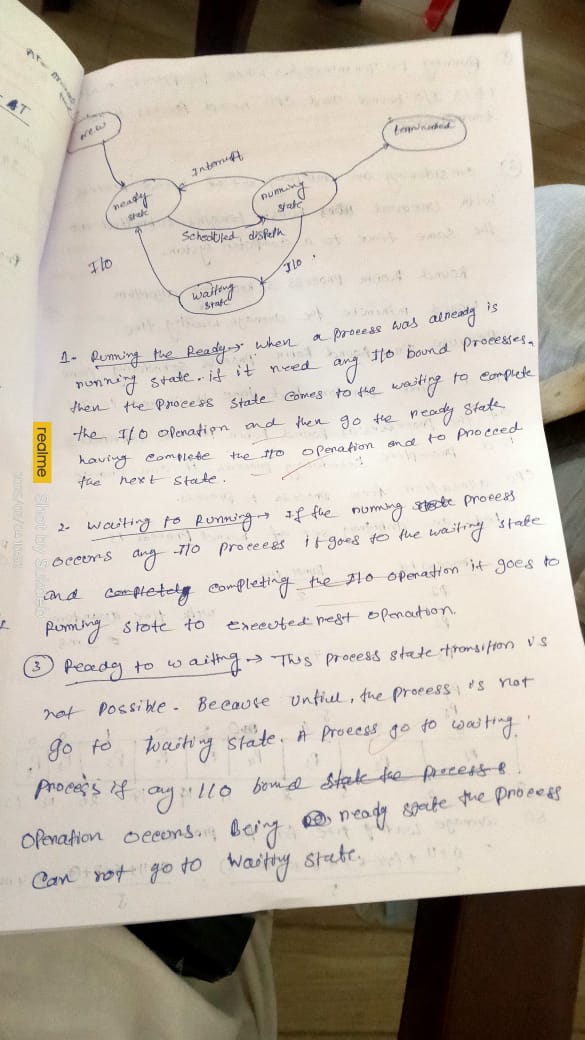 AT
new
terminated
Interrupt
ready
state
running
state
Scheduled, dispath
I/o
I/o
waiting
state
1- Running the Ready → when a process was already is
running state. if it need any I/o bound processes,
then the process state comes to the waiting to complete
the I/o operation and then go the ready state
having complete the I/o operation and to proceed
the next state.
2- waiting to Running → If the running state process
occurs any I/o process it goes to the waiting state
and completely completing the I/o operation it goes to
Running state to executed next operation.
3 Ready to waiting → This process state transition is
not possible. Because untill, the process is not
go to waiting state. A process go to waiting
process if any I/o bound state the process
operation occurs. Being ready state the process
can not go to waiting state.
realme Shot by